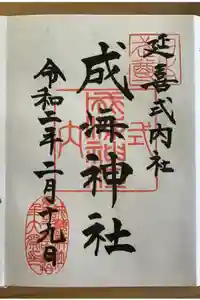 延喜式内社
成海神社
令和二年二月十九日
式内